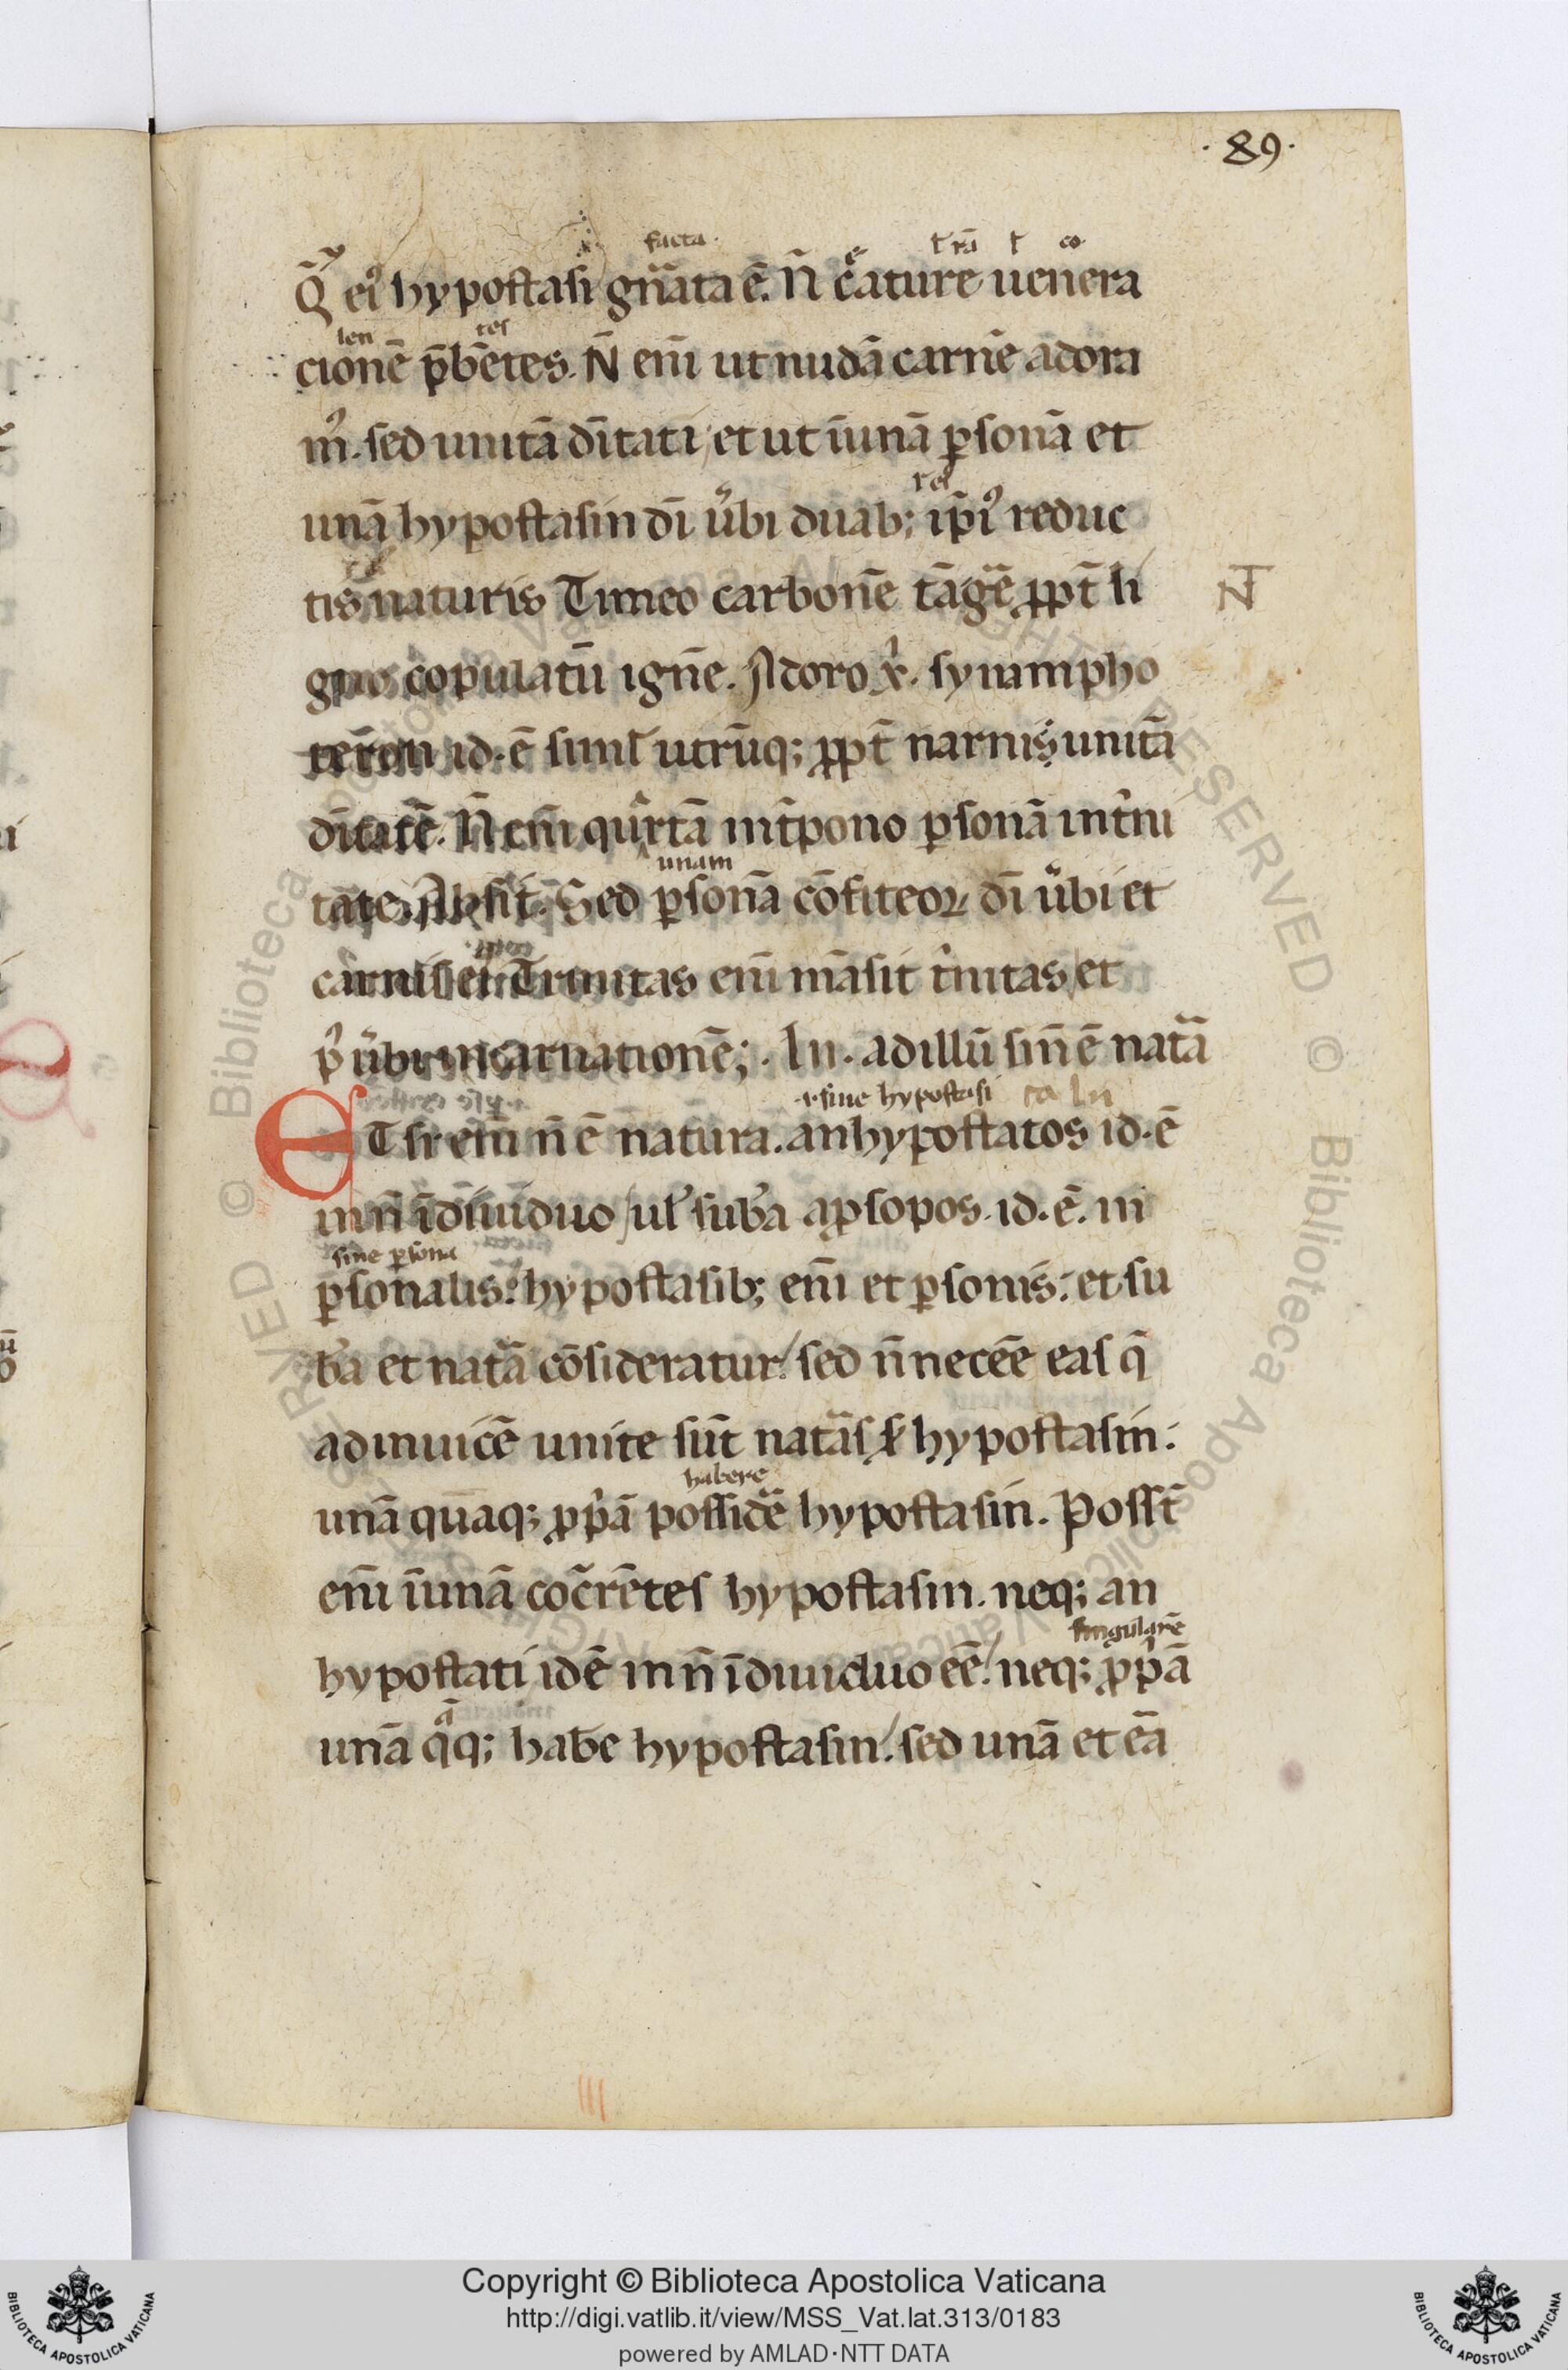 · 89 ·
facta · ł rā ł co
q̃ ei᷒ hypostasi gn̄ata ē. n̄ creature uenera
len tes
cionē p̄bētes. N̄ eni̅ ut nudā carnē adora
m᷒. sed unitā dītati; et ut i̅ unā p̱sonā et
unā hypostasin dī u̾bi duab; ip̄i᷒ reduc
tis naturis Timeo carbonē tāgē p̱p̄t li
NT
gnis copulatū ignē. Adoro x̄. synampho
teron id·ē simł utrūq; p̱p̄t carnis unitā
dītatē. N̄ eni̅ qu̾rtā int̄pono p̱sonā in t̾ni
unam
tate. Absit. Sed p̱sonā cōfiteoꝝ dī u̾bi et
carnis ei᷒ Trinitas eni̅ māsit t̾nitas et
p᷒ u̾bi incarnationē; · In. ad illū sin̄ ē nat̄a
·i· sine hypostasi
ET si eni̅ n̄ ē natura. anhypostatos id·ē
in n̄ īdiuiduo ul̾ sub̾a ap̱sopos. id·ē. in
sine p̱sona
p̱sonalis: hypostasib; eni̅ et p̱sonis: et su
b̾a et nat̄a cōsideratur/ sed n̄ necēe eas q̄
ad inuicē unite sūt nat̄as s̾ hypostasin:
habere
unā quaq; p̱p̾ā possidē hypostasin. Posst̄
eni̅ i̅ unā coc̄rētes hypostasin. neq; an
singularē
hypostati idē in n̄ īdiuiduo ēē/ neq; p̱p̾ā
unā q̾q; habe hypostasin/ sed unā et ēā
Copyright © Biblioteca Apostolica Vaticana
http://digi.vatlib.it/view/MSS_Vat.lat.313/0183
powered by AMLAD·NTT DATA
BIBLIOTECA APOSTOLICA VATICANA
BIBLIOTECA APOSTOLICA VATICANA